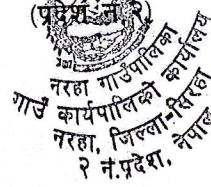 (प्रदेश नं २)
नरहा गाउँपालिका
गाउँ कार्यपालिको कार्यालय
नरहा, जिल्ला-सिरहा
२ नं.प्रदेश, नेपाल